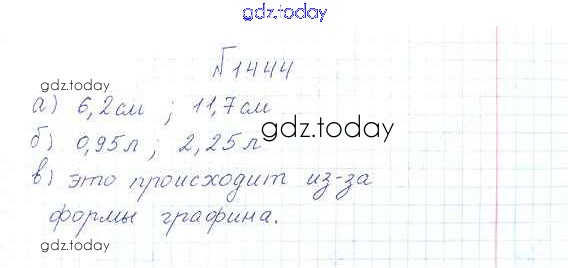 gdz.today
№1444
gdz.today
а) 6,2см ; 11,7см
gdz.today
б) 0,95л ; 2,25л
в) это происходит из-за
формы графина.
gdz.today